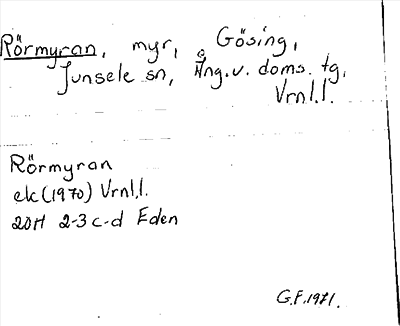 Rörmyran, myr, Gösing,
Junsele sn, Ång.v. doms. tg.
Vrnl.l.
Rörmyran
ek (1970) Vrnl.l.
20H 2-3 c-d Eden
G.F. 1971.